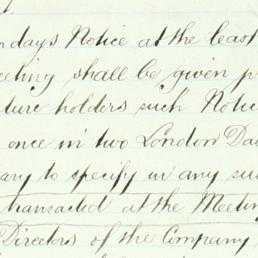 ndays Notice at the least
eeting shall be given p
ture holders such Notic
once in two London Dai
ary to specify in any su
transacted at the Meetin
Directors of the Company